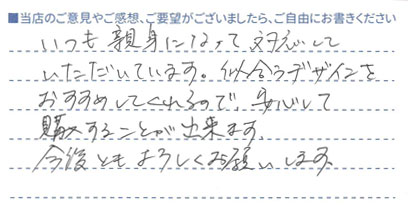 ■当店のご意見やご感想、ご要望がございましたら、ご自由にお書きください
いつも親身になって対応して
いただいています。似合うデザインを
おすすめしてくれるので、安心して
購入することが出来ます。
今後ともよろしくお願いします。